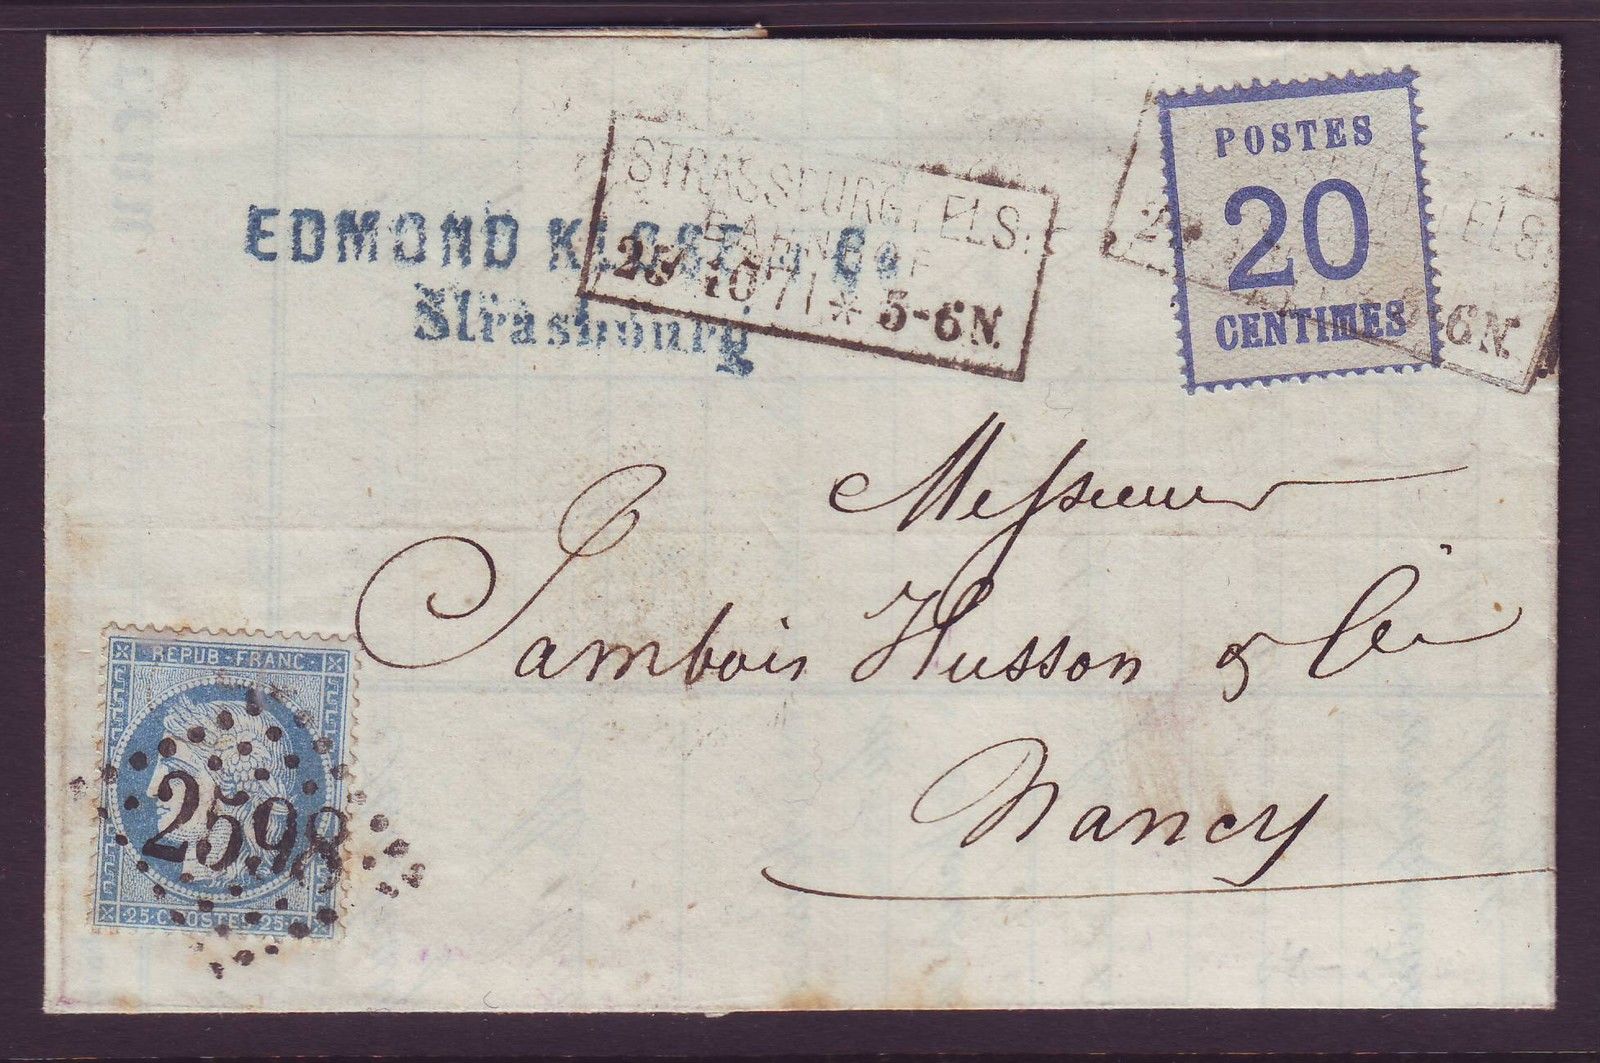 STRASSBURG I ELS.
BAHNHOF
25 10 71 * 5-6 N.
EDMOND & Co.
Strasbourg
POSTES
20
CENTIMES
ELS.
6 N.
Messieurs
Jambois Husson & Cie
Nancy
REPUB·FRANC·
2598
25·C·POSTES·25·C·